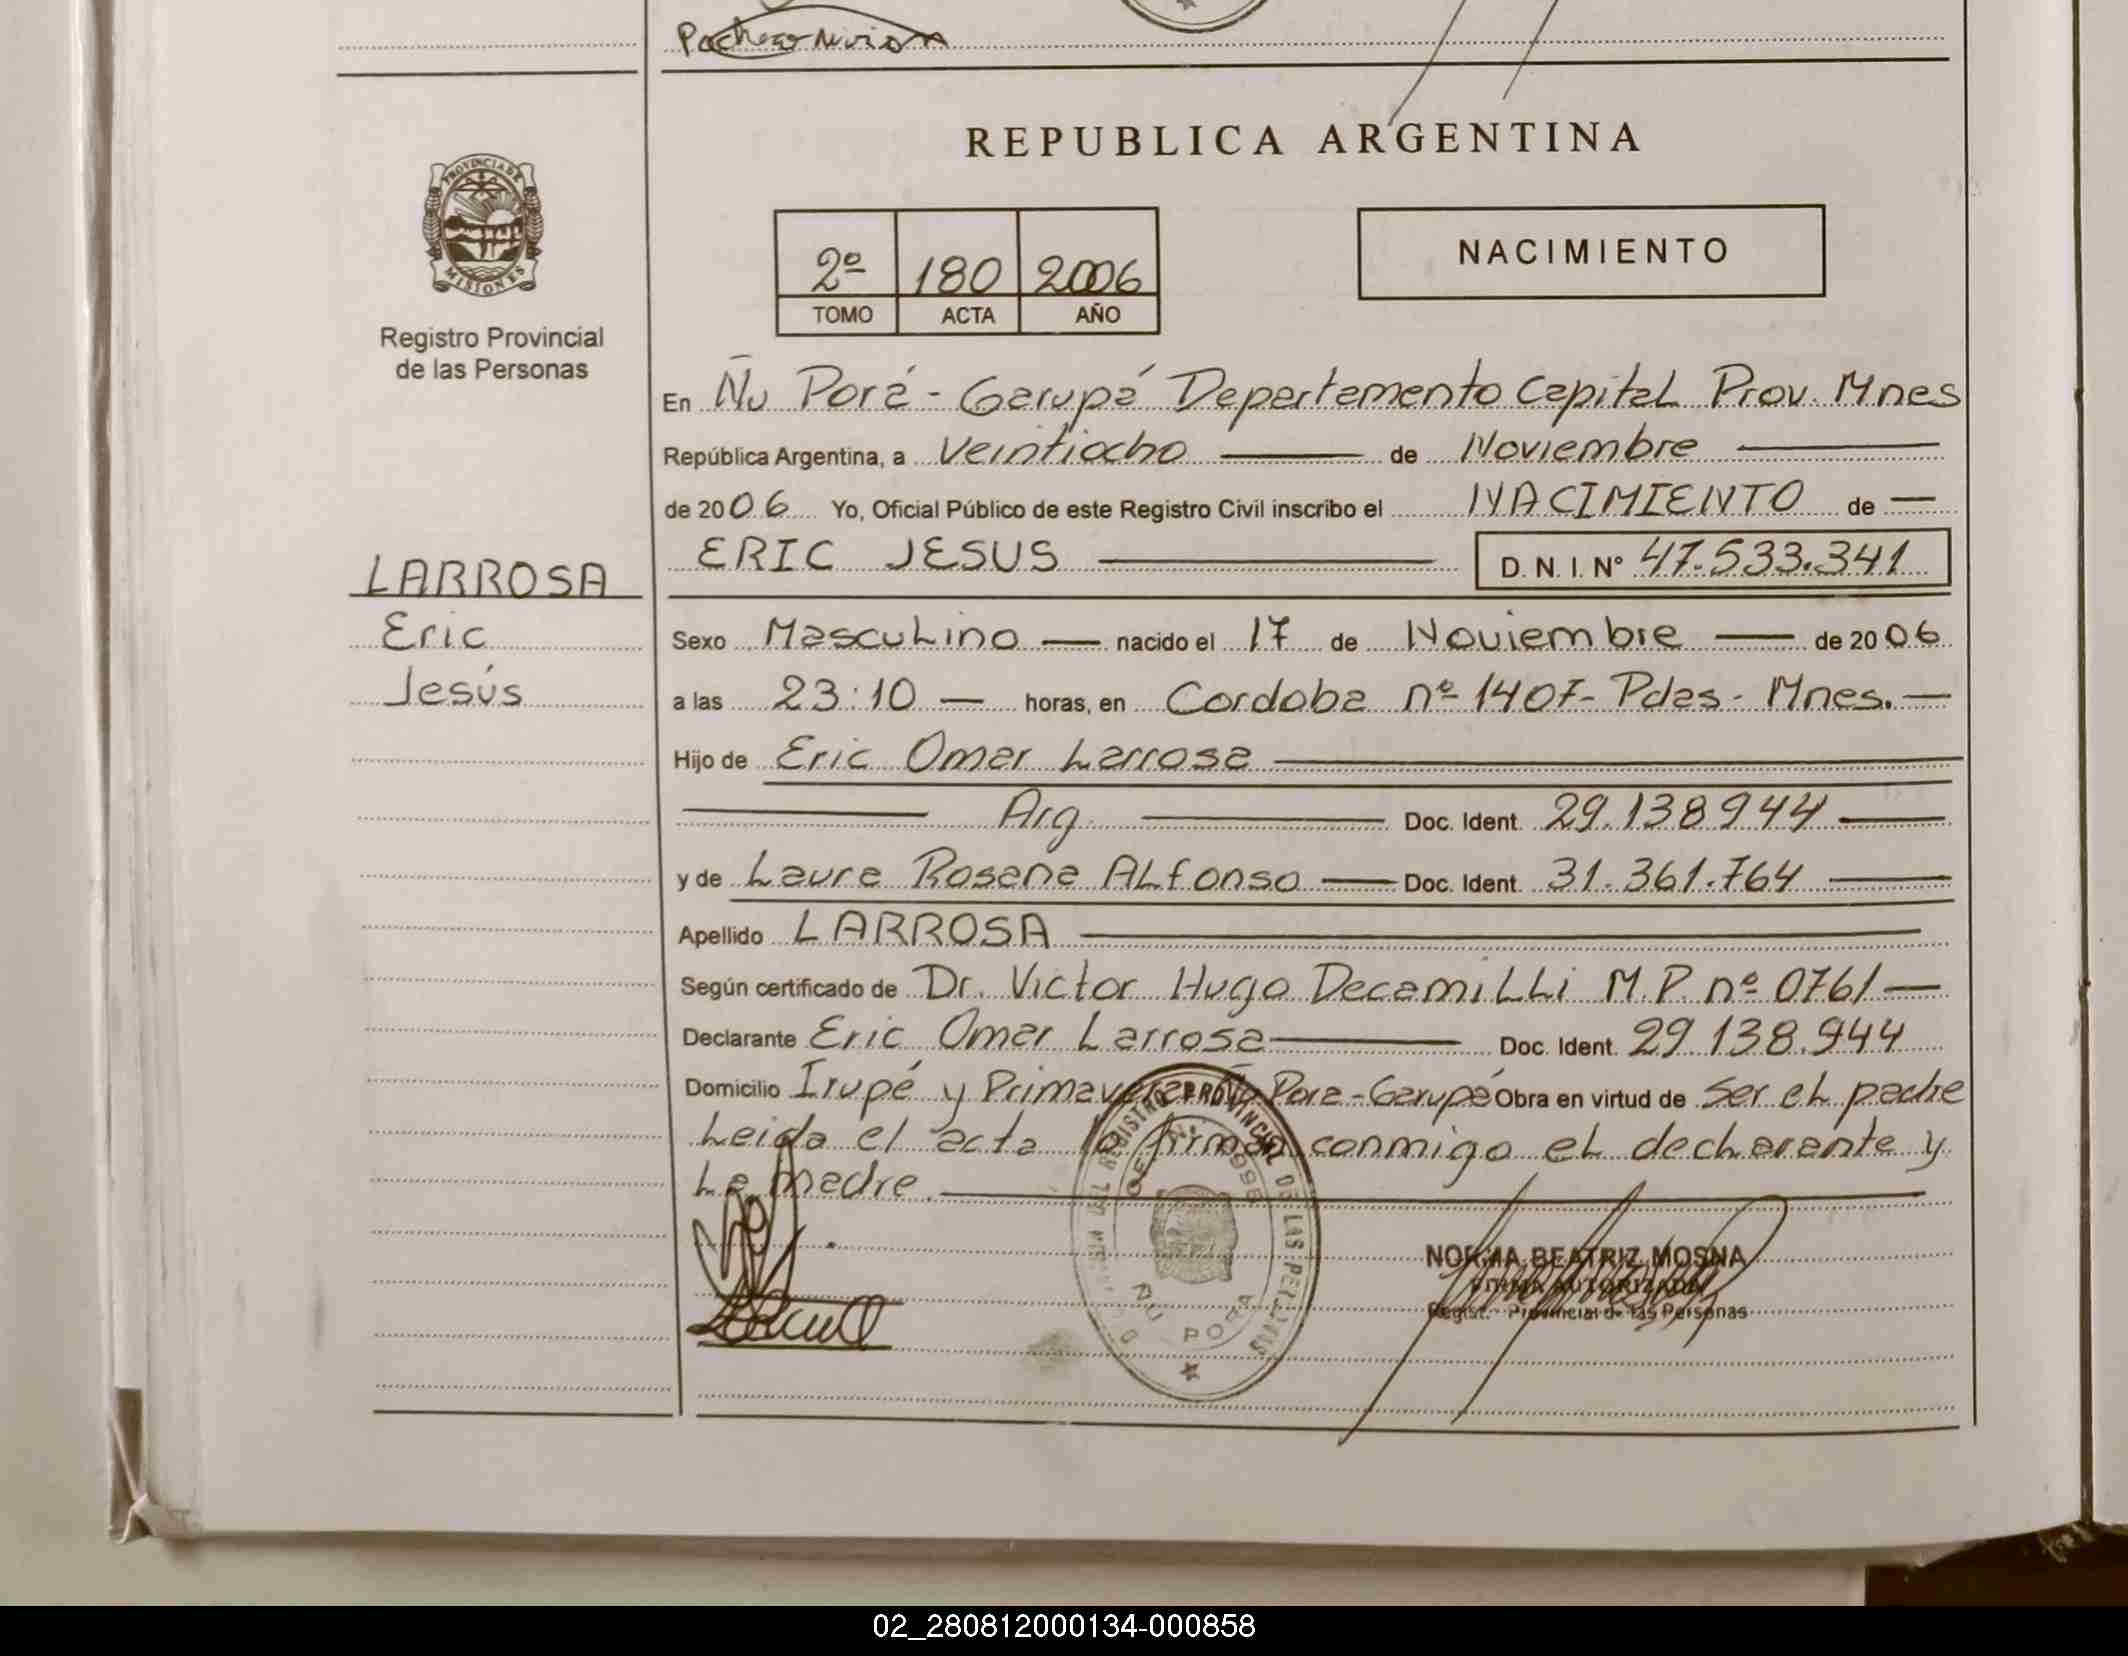 Pacheco
REPUBLICA ARGENTINA
PROVINCIA DE MISIONES
Registro Provincial
de las Personas
2º 180 2006
TOMO ACTA AÑO
NACIMIENTO
En Ñu Porá - Garupá Departamento Capital Prov. Mnes
República Argentina, a Veintiocho de Noviembre
de 2006 Yo, Oficial Público de este Registro Civil inscribo el NACIMIENTO de
ERIC JESUS D. N. I. Nº 47.533.341
LARROSA
Eric
Jesús
Sexo Masculino nacido el 17 de Noviembre de 2006
a las 23:10 horas, en Cordoba nº 1407 - Pdas - Mnes.
Hijo de Eric Omar Larrosa
Arg. Doc. Ident. 29.138944
y de Laura Rosana Alfonso Doc. Ident. 31.361.764
Apellido LARROSA
Según certificado de Dr. Victor Hugo Decamilli M.P. nº 0761
Declarante Eric Omar Larrosa Doc. Ident. 29.138.944
Domicilio Irupé y Primavera Ñu Pora - Garupá Obra en virtud de ser el padre
Leida el acta la firman conmigo el declarante y
la madre.
REGISTRO PROVINCIAL DE LAS PERSONAS
ÑU PORA
NORMA BEATRIZ MOSNA
FIRMA AUTORIZADA
Regist. Provincial de las Personas
02_280812000134-000858